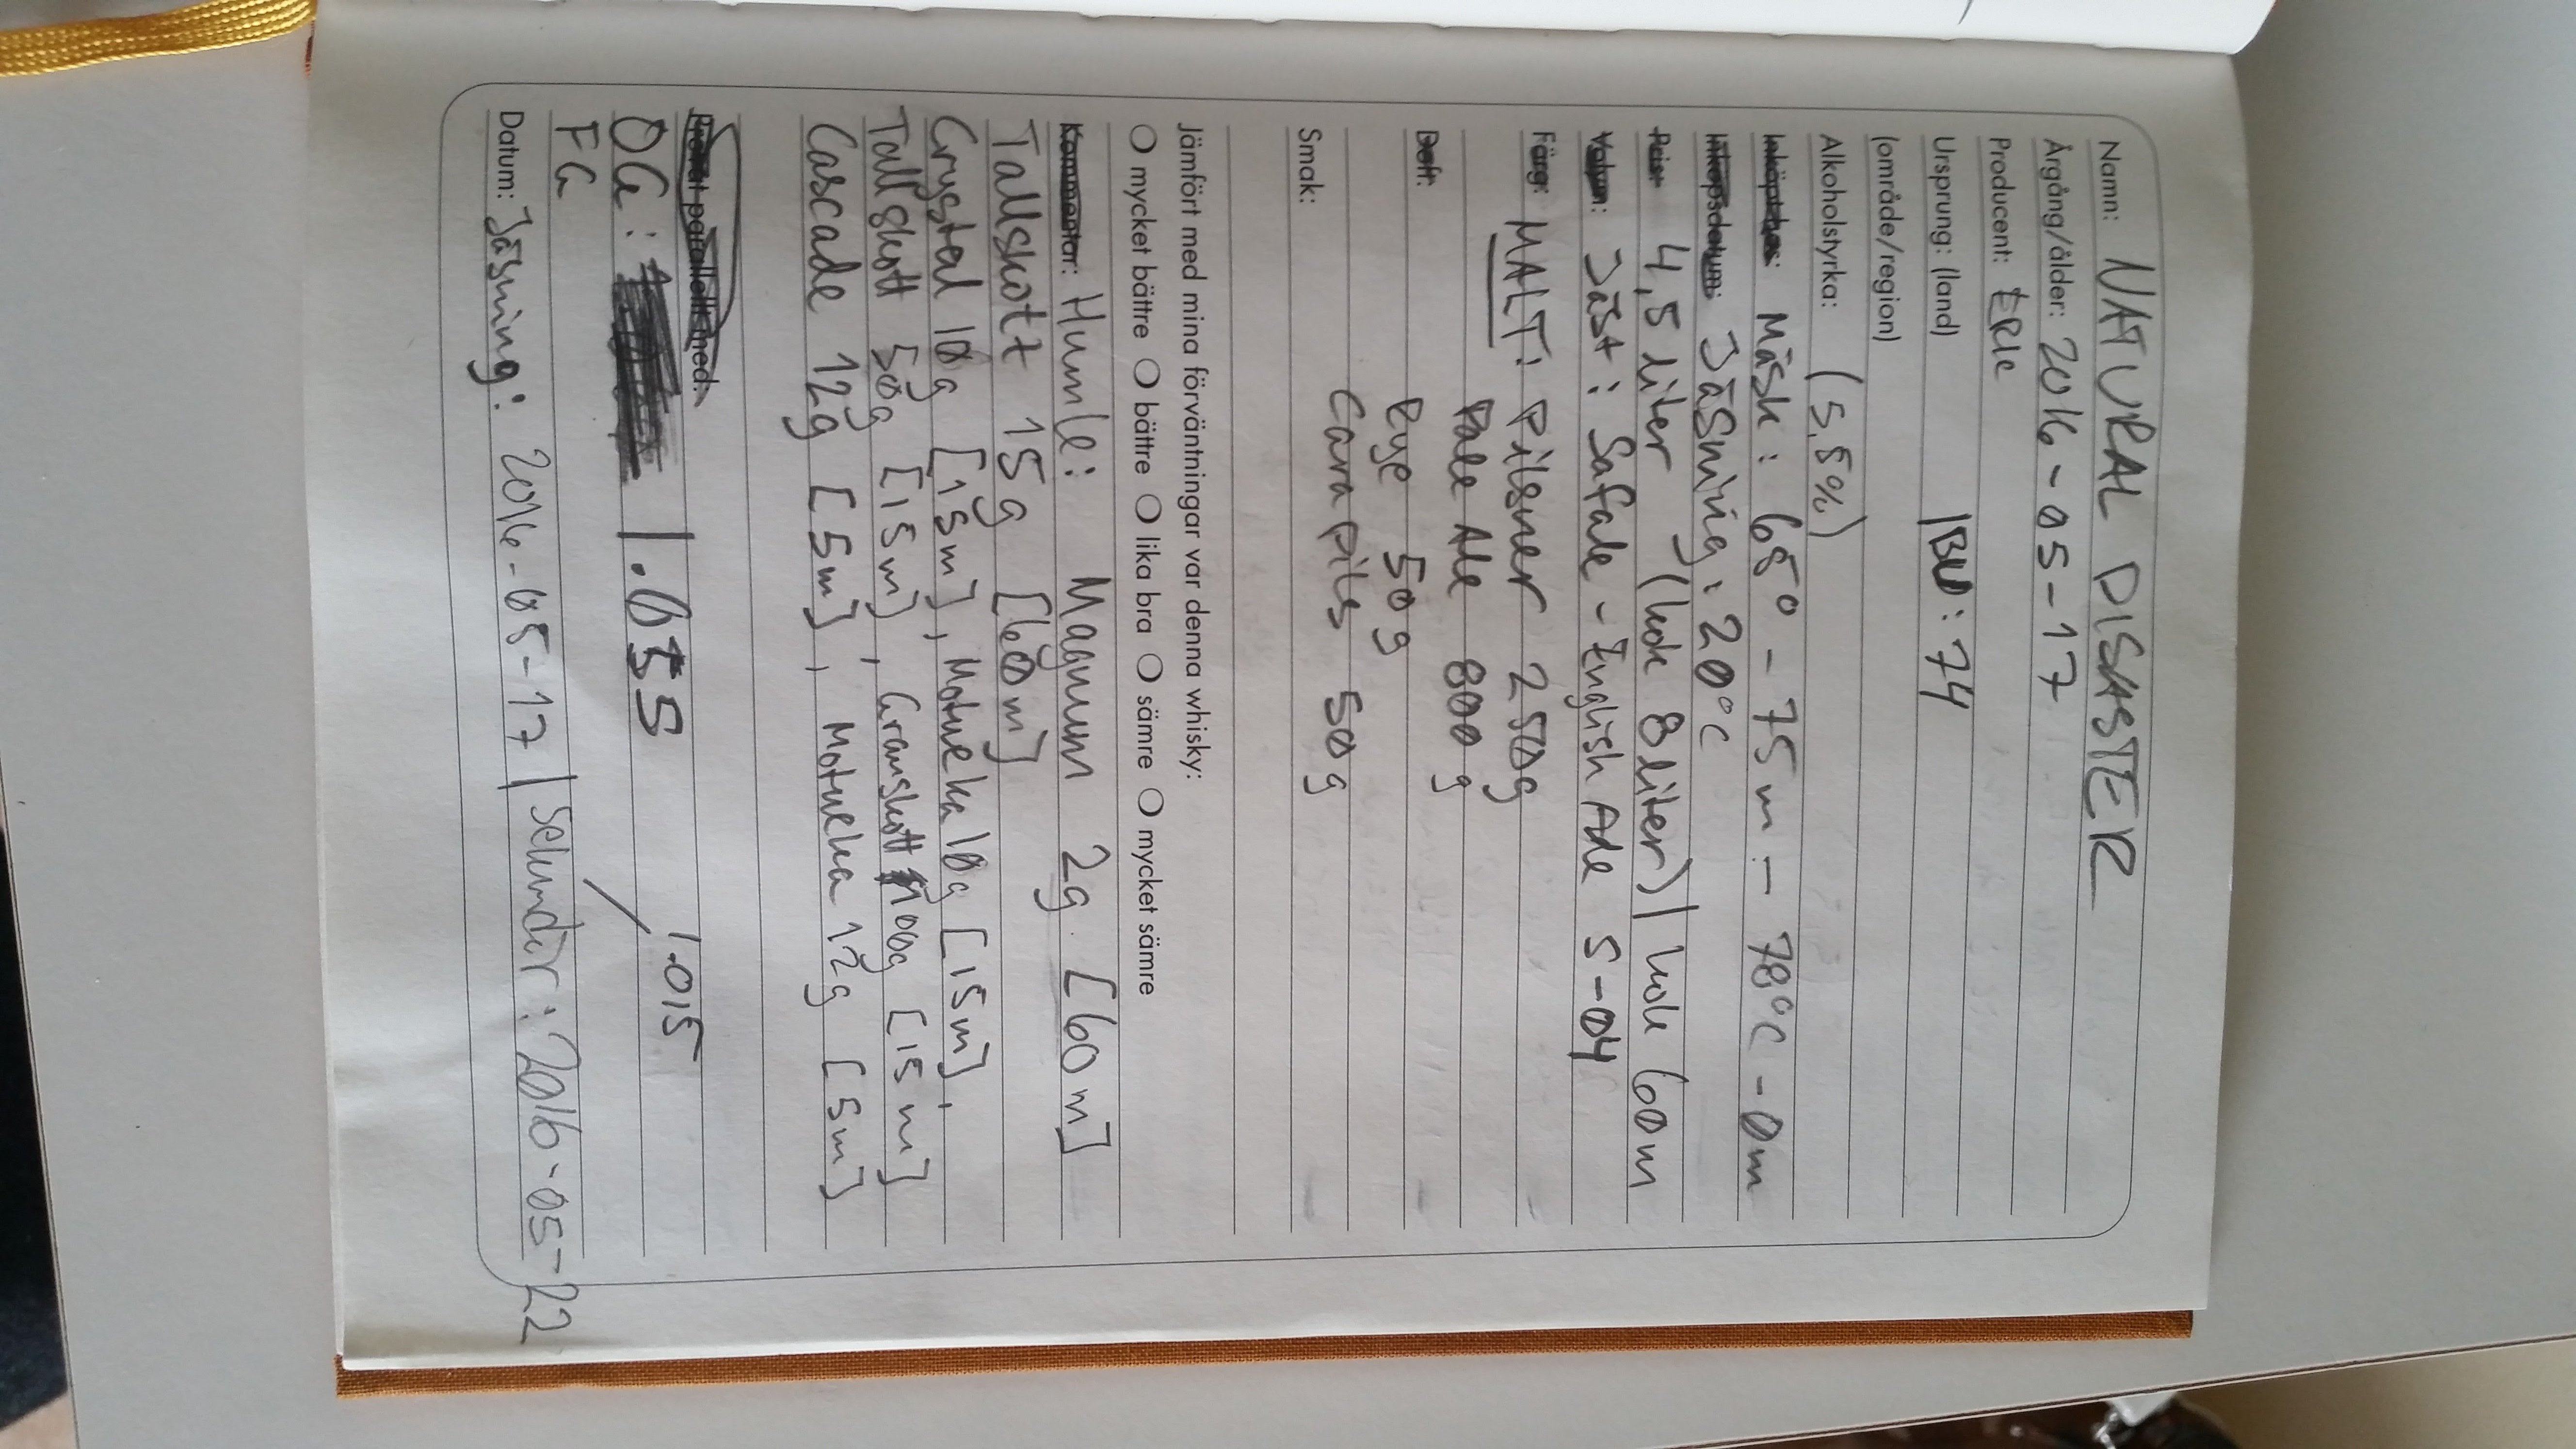 Namn: NATURAL DISASTER
Årgång/ålder: 2016-05-17
Producent: ERIC
Ursprung: (land) IBU: 74
(område/region)
Alkoholstyrka: (5,5%)
Inköpt hos: Mäsk: 68° - 75m - 78°C - 0m
Inköpsdatum: Jäsning: 20°C
Pris: 4,5 liter (kok 8 liter) | kok 60m
Volym: Jäst: Safale - English Ale S-04
Färg: MALT: Pilsner 250g
Pale Ale 800g
Doft: Rye 50g
Cara Pils 50g
Smak:
Jämfört med mina förväntningar var denna whisky:
mycket bättre bättre lika bra sämre mycket sämre
Kommentar: Humle: Magnum 2g [60m]
Tallskott 15g [60m]
Crystal 10g [15m], Motueka 10g [15m],
Tallskott 50g [15m], Granskott 100g [15m]
Cascade 12g [5m], Motueka 12g [5m]
Provat parallellt med:
OG: 1.055
FG 1.015
Datum: Jäsning: 2016-05-17 | Sekundär: 2016-05-22